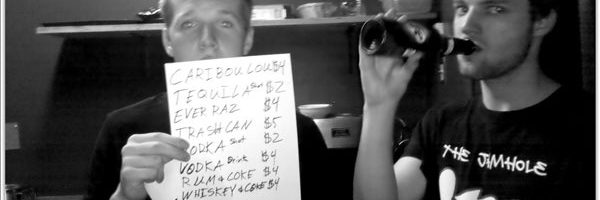 CARIBOU LOU $4
TEQUILA Shot $2
EVER RAZ $4
TRASHCAN $5
VODKA Shot $2
VODKA Drink $4
RUM & COKE $4
WHISKEY & COKE $4
THE JIMHOLE